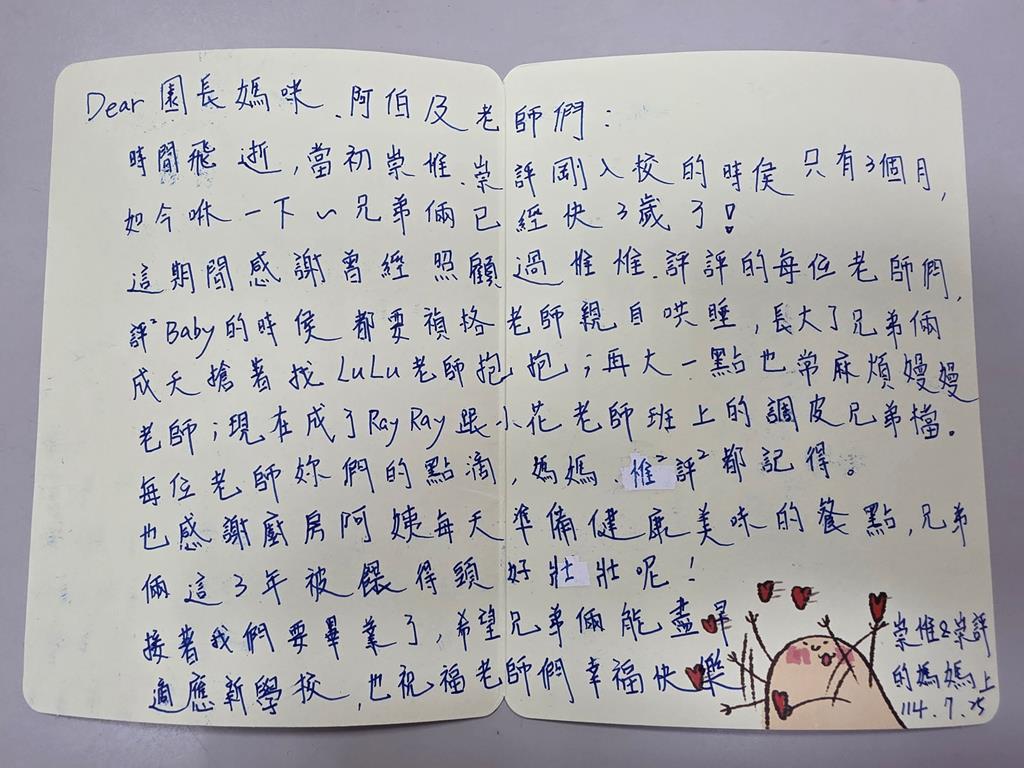 Dear 園長媽咪、阿伯及老師們：
時間飛逝，當初崇惟、崇評剛入校的時侯只有3個月，
如今咻一下～兄弟倆已經快3歲了！
這期間感謝曾經照顧過惟惟、評評的每位老師們，
評² Baby的時侯都要禎格老師親自哄睡，長大了兄弟倆
成天搶著找LuLu老師抱抱；再大一點也常麻煩嫚嫚
老師；現在成了Ray Ray跟小花老師班上的調皮兄弟檔。
每位老師妳們的點滴，媽媽、惟²評²都記得。
也感謝廚房阿姨每天準備健康美味的餐點，兄弟
倆這3年被餵得頭好壯壯呢！
接著我們要畢業了，希望兄弟倆能盡早
適應新學校，也祝福老師們幸福快樂
崇惟&崇評
的媽媽上
114.7.25